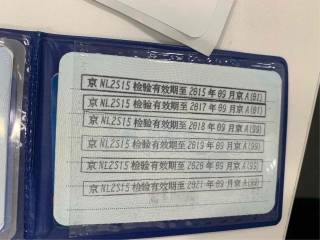 京NL2S15检验有效期至2015年09月京A(01)
京NL2S15检验有效期至2017年09月京A(01)
京NL2S15检验有效期至2018年09月京A(99)
京NL2S15检验有效期至2019年09月京A(99)
京NL2S15检验有效期至2020年09月京A(99)
京NL2S15检验有效期至2021年09月京A(99)